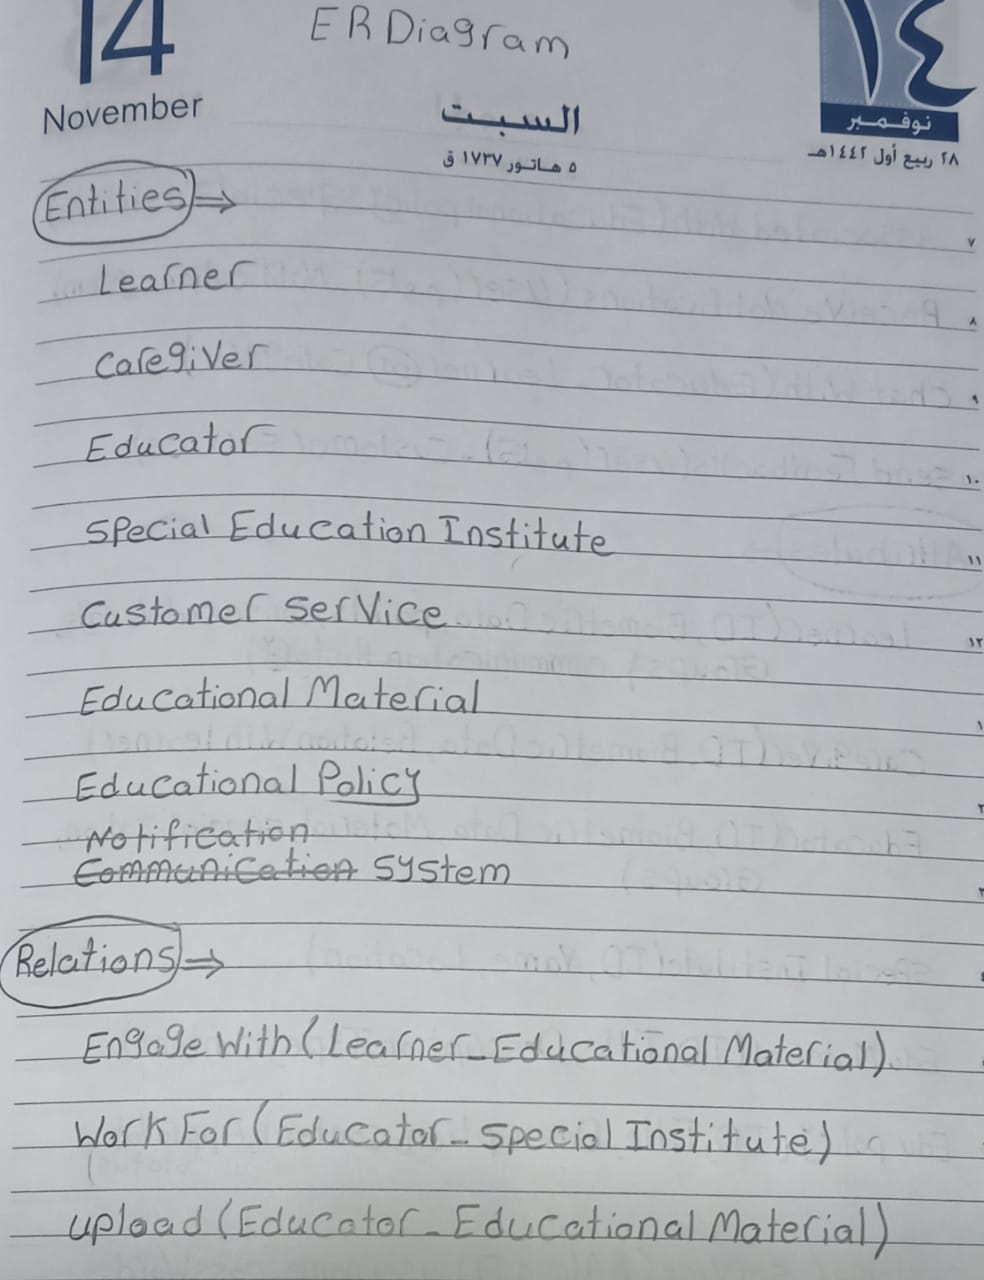 14
ER Diagram
١٤
November
السبت
نوفمبر
٥ هاتور ١٧٣٧ ق
٢٨ ربيع أول ١٤٤٢هـ
Entities ⇒
٧
Learner
٨
Caregiver
٩
Educator
١٠
Special Education Institute
١١
Customer Service
١٢
Educational Material
١
Educational Policy
٢
Notification
Communication System
٣
Relations ⇒
Engage With (Learner - Educational Material)
Work For (Educator - Special Institute)
upload (Educator - Educational Material)